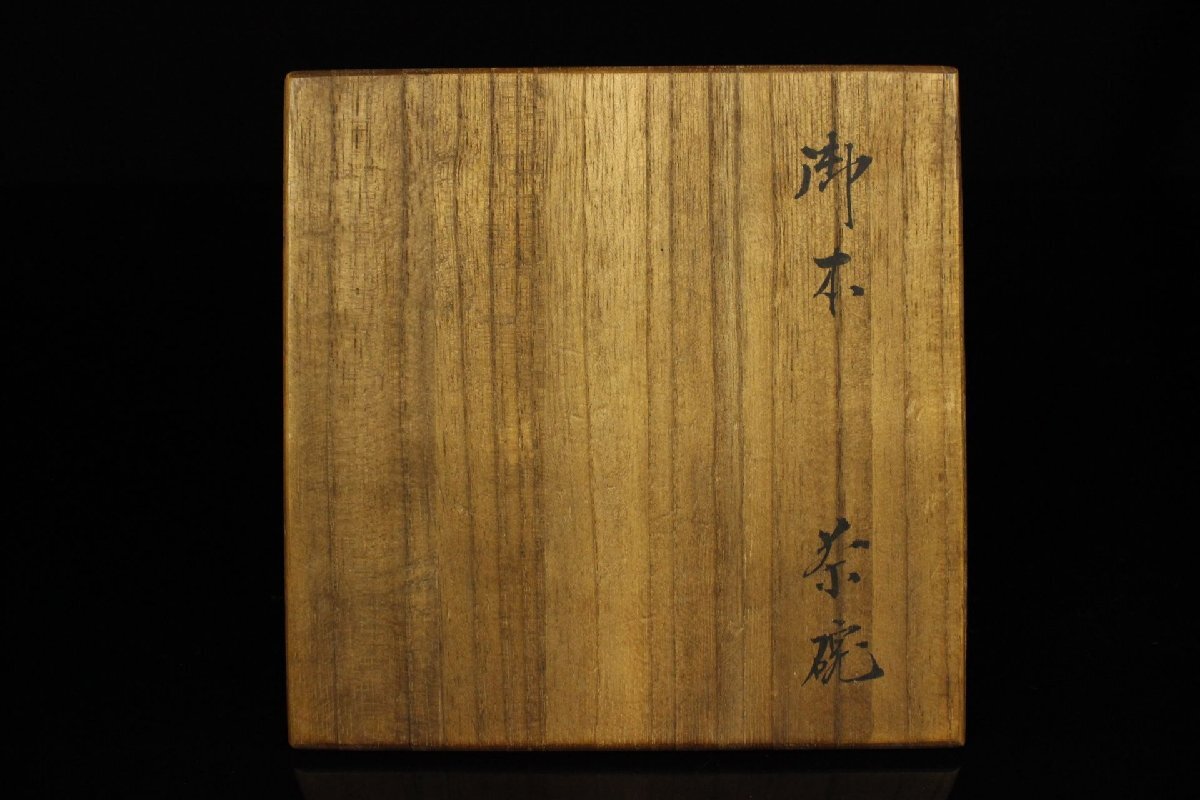 御本 茶碗